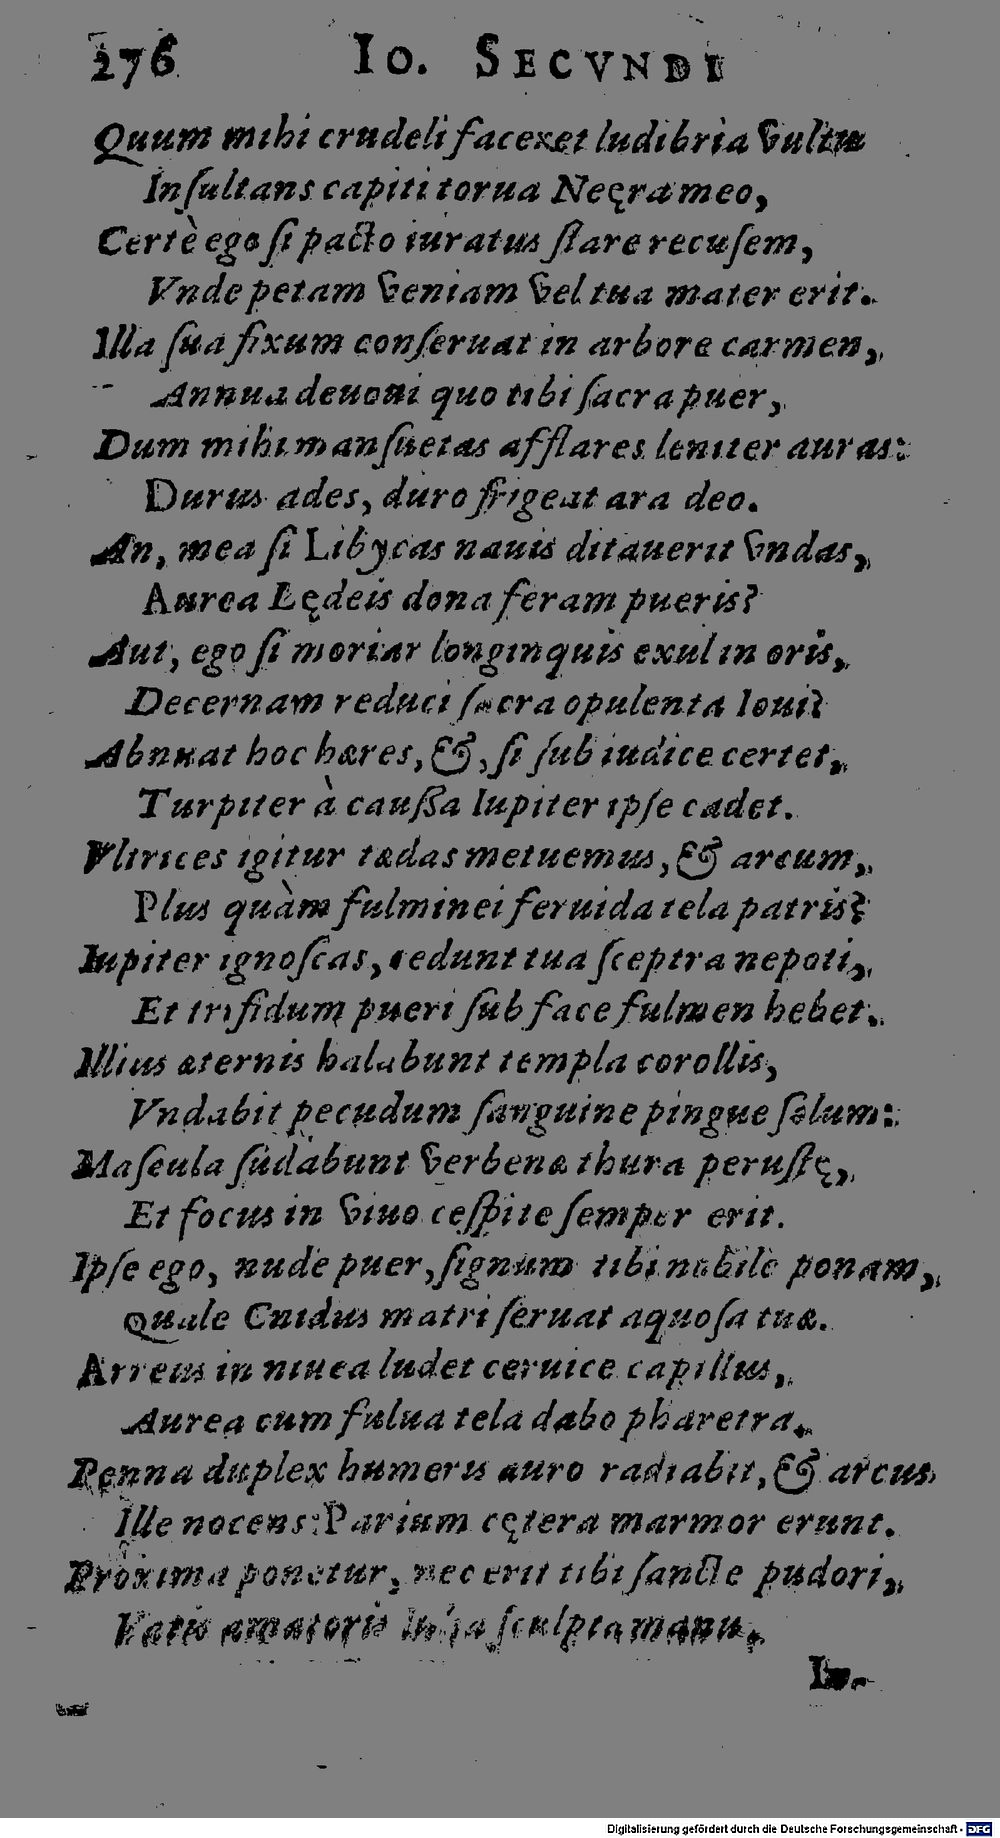 276 IO. SECVNDI
Quum mihi crudeli faceret ludibria vultu
Inſultans capiti torua Neęra meo,
Certè ego ſi pacto iuratus ſtare recuſem,
Vnde petam veniam vel tua mater erit.
Illa ſua fixum conſeruat in arbore carmen,
Annua deuoui quo tibi ſacra puer,
Dum mihi manſuetas afflares leniter auras:
Durus ades, duro frigeat ara deo.
An, mea ſi Libycas nauis ditauerit vndas,
Aurea Lędeis dona feram pueris?
Aut, ego ſi moriar longinquis exul in oris,
Decernam reduci ſacra opulenta Ioui?
Abnuat hoc hæres, &, ſi ſub iudice certet,
Turpiter à cauſſa Iupiter ipſe cadet.
Vltrices igitur tædas metuemus, & arcum,
Plus quàm fulminei feruida tela patris?
Iupiter ignoſcas, cedunt tua ſceptra nepoti,
Et trifidum pueri ſub face fulmen hebet.
Illius æternis halabunt templa corollis,
Vndabit pecudum ſanguine pingue ſolum:
Maſcula ſudabunt verbenæ thura peruſtę,
Et focus in viuo ceſpite ſemper erit.
Ipſe ego, nude puer, ſignum tibi nobile ponam,
Quale Cnidus matri ſeruat aquoſa tuæ.
Arreus in niuea ludet ceruice capillus,
Aurea cum fulua tela dabo pharetra.
Penna duplex humeris auro radiabit, & arcus
Ille nocens: Parium cętera marmor erunt.
Proxima ponetur, nec erit tibi ſancte pudori,
Vatis amatoris ſculpta manu.